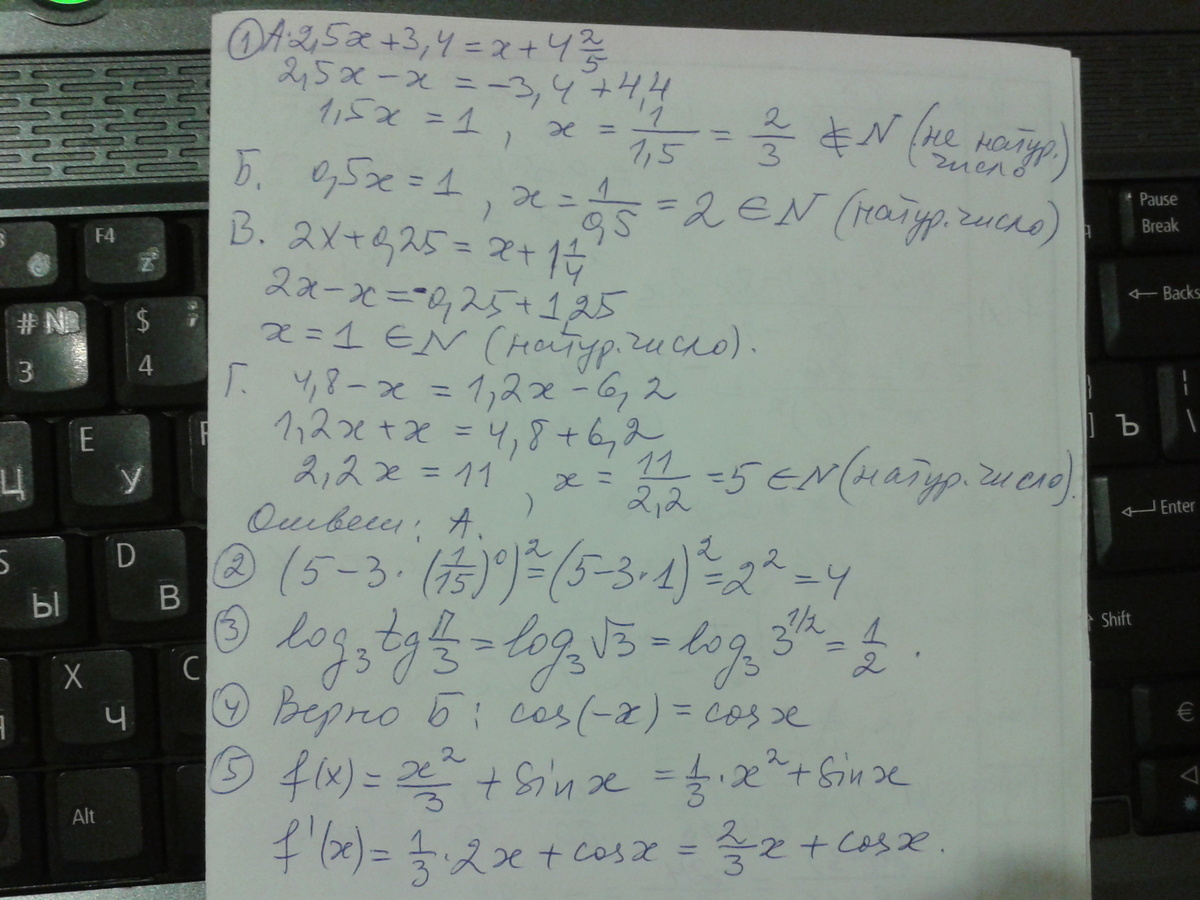 ① А. 2,5x + 3,4 = x + 4 2/5
2,5x − x = −3,4 + 4,4
1,5x = 1, x = 1/1,5 = 2/3 ∉ N (не натур. число)
Б. 0,5x = 1, x = 1/0,5 = 2 ∈ N (натур. число)
В. 2x + 0,25 = x + 1 1/4
2x − x = −0,25 + 1,25
x = 1 ∈ N (натур. число).
Г. 4,8 − x = 1,2x − 6,2
1,2x + x = 4,8 + 6,2
2,2x = 11, x = 11/2,2 = 5 ∈ N (натур. число).
Ответ: А.
② (5 − 3 · (1/15)⁰)² = (5 − 3 · 1)² = 2² = 4
③ log₃ tg π/3 = log₃ √3 = log₃ 3^1/2 = 1/2.
④ Верно Б: cos(−x) = cos x
⑤ f(x) = x²/3 + sin x = 1/3 · x² + sin x
f'(x) = 1/3 · 2x + cos x = 2/3 x + cos x.
F4
Z
# №
3
$ ;
4
E
У
Ц
S
Ы
D
В
X
Ч
C
Alt
Pause
Break
← Backs
Ъ
\
Enter
Shift
€